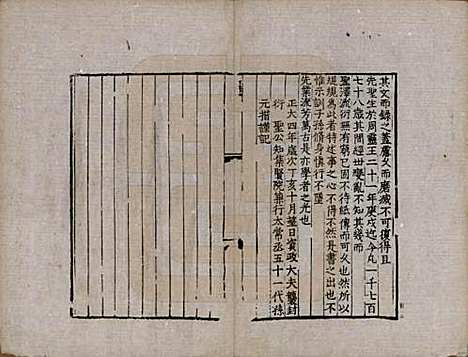 其文而錄之蓋慮久而磨滅不可復得且
先聖生於周靈王二十一年庚戌迄今凡一千七百
七十八歲其間經世變亂不知其幾而
聖澤流衍無有窮已固不待紙傳而可久也然所以
規規為此者特述事之心不得不然是書之出也不
惟示訓子孫脩身慎行不墜
先業流芳萬古是亦學者之光也
正大四年歲次丁亥十月望日資政大夫襲封
衍聖公知集賢院兼行太常丞五十一代孫
元措謹記